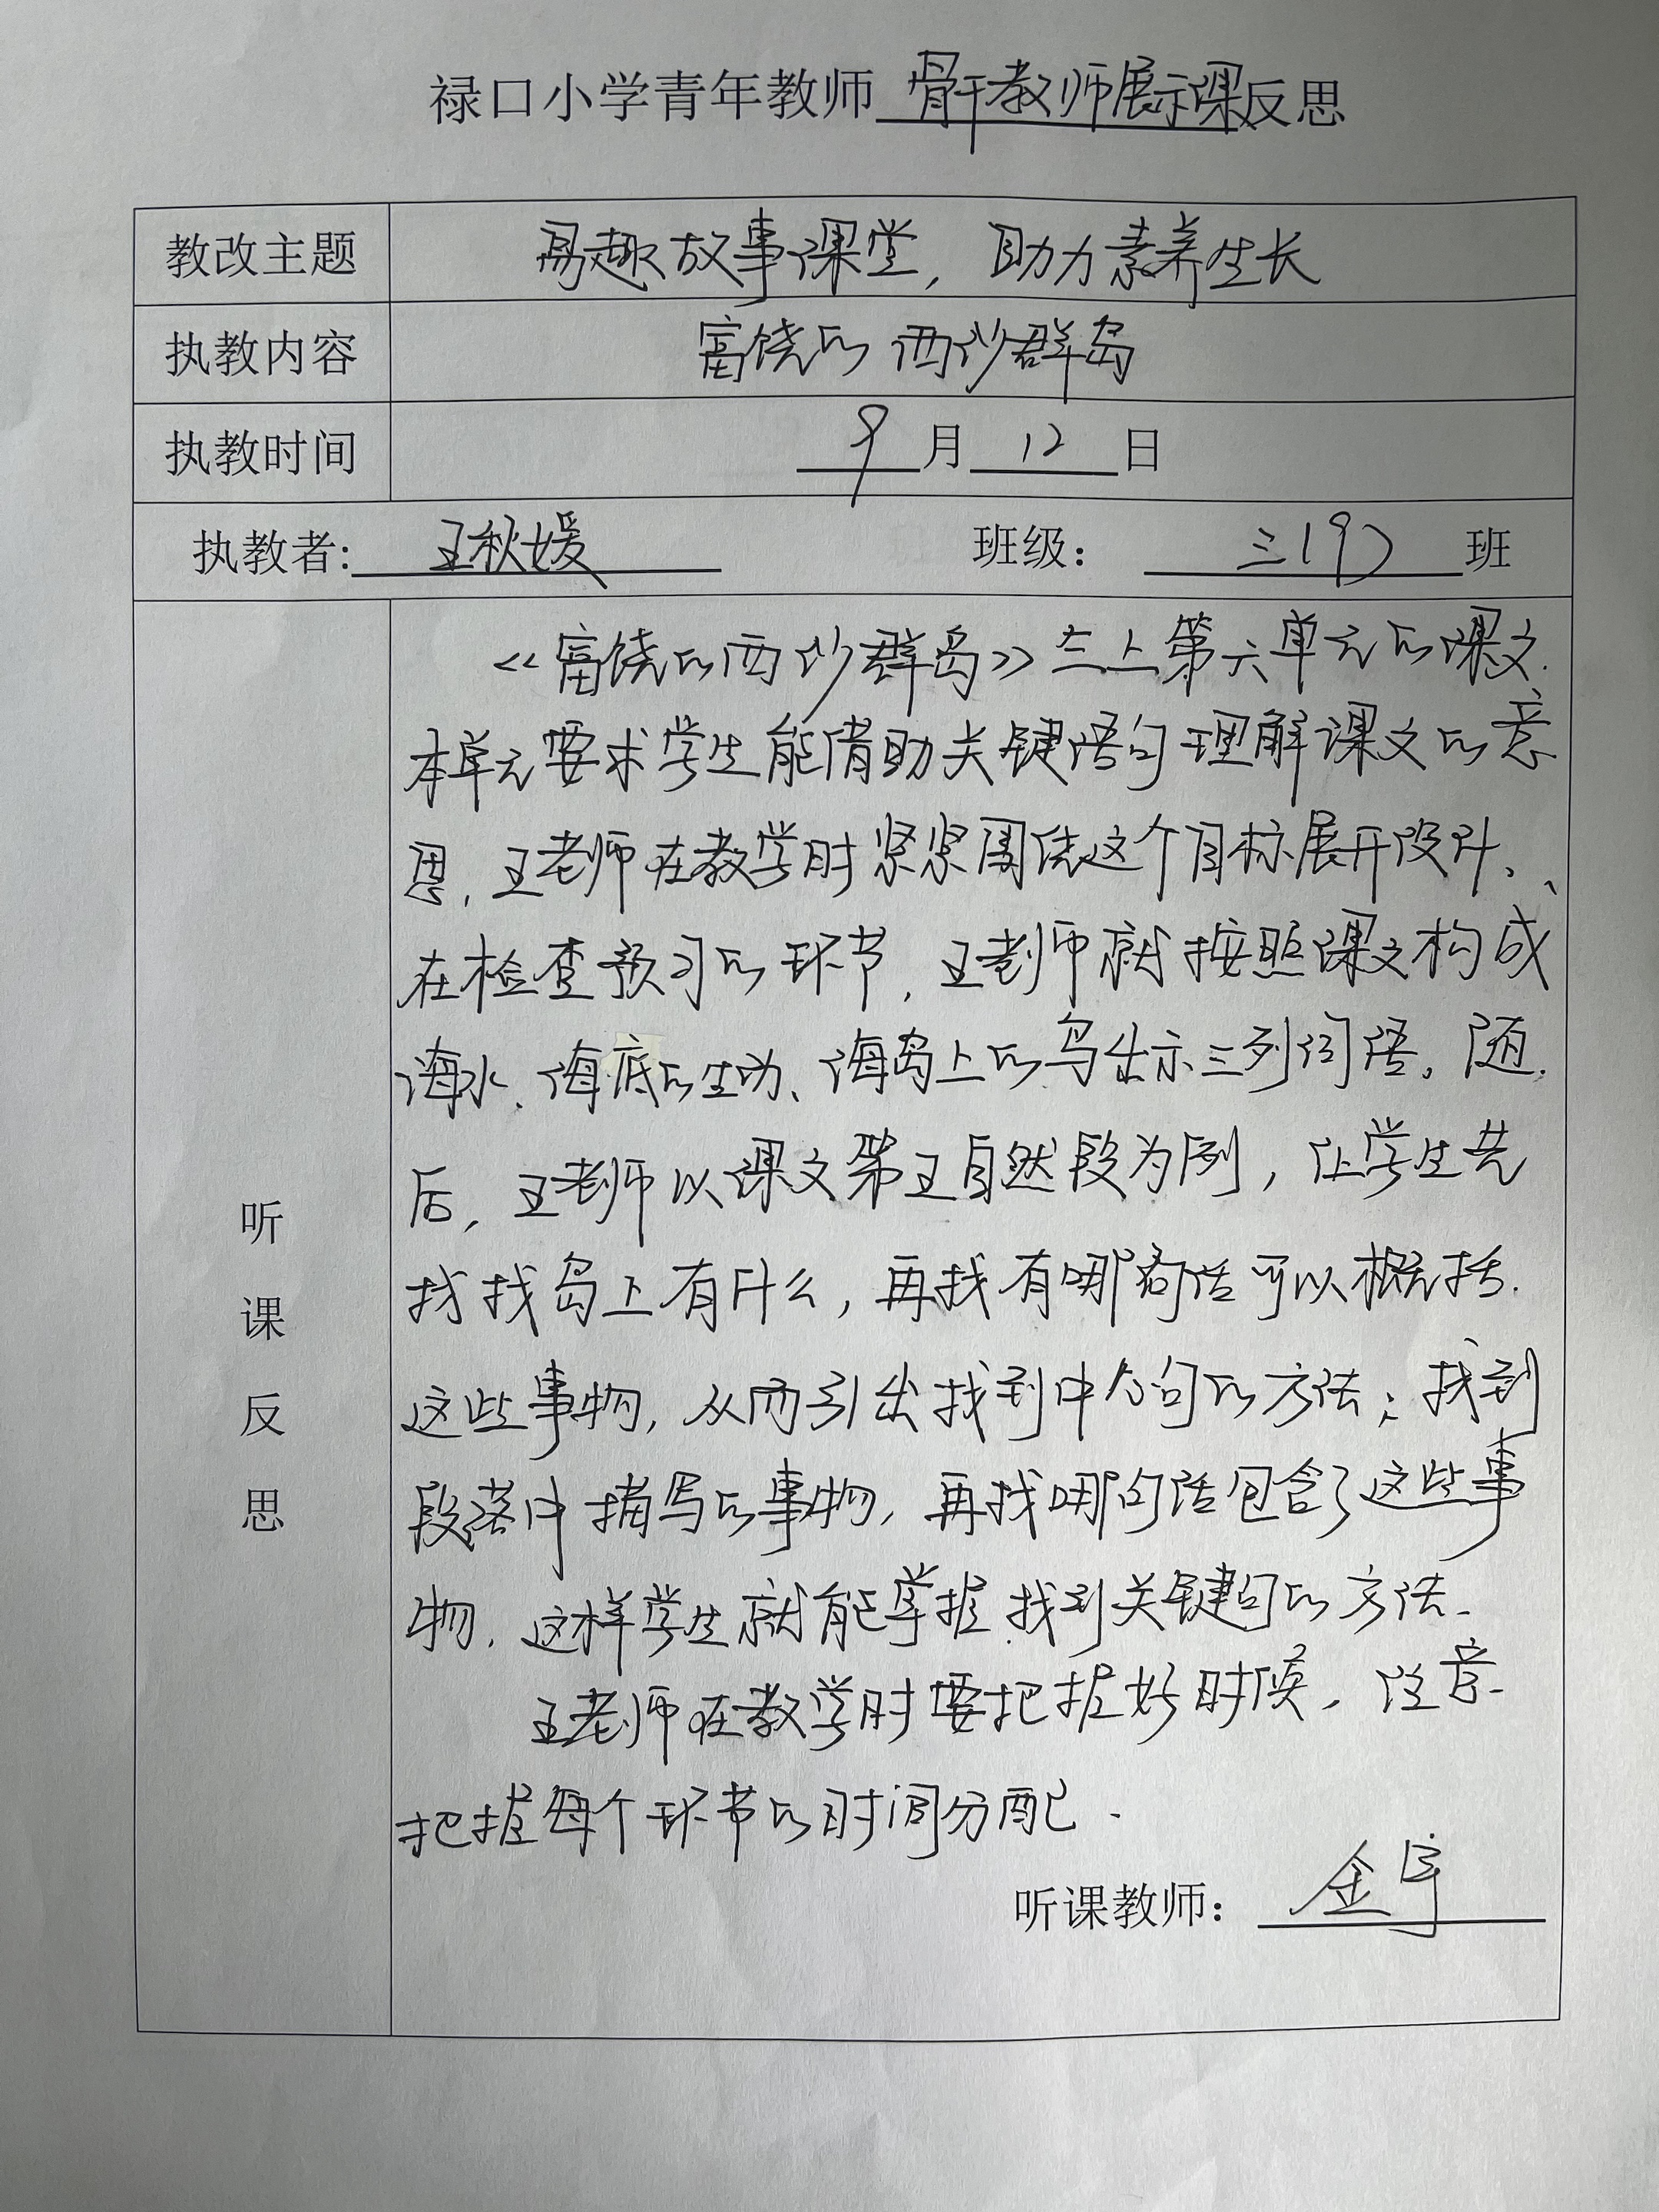 禄口小学青年教师 骨干教师展示课反思
教改主题 易趣故事课堂，助力素养生长
执教内容 富饶的西沙群岛
执教时间 9月12日
执教者: 王秋媛 班级： 三(9) 班
《富饶的西沙群岛》三上第六单元的课文.
本单元要求学生能借助关键语句理解课文的意
思，王老师在教学时紧紧围绕这个目标展开设计、
在检查预习的环节，王老师就按照课文构成
海水、海底的生动、海岛上的鸟出示三列词语。随
后，王老师以课文第五自然段为例，让学生先
找找岛上有什么，再找有哪句话可以概括.
这些事物，从而引出找到中心句的方法；找到
段落中描写的事物，再找哪句话包含了这些事
物，这样学生就能掌握找到关键句的方法.
王老师在教学时要把握好时候，注意
把握每个环节的时间分配.
听课反思
听课教师： 金宇